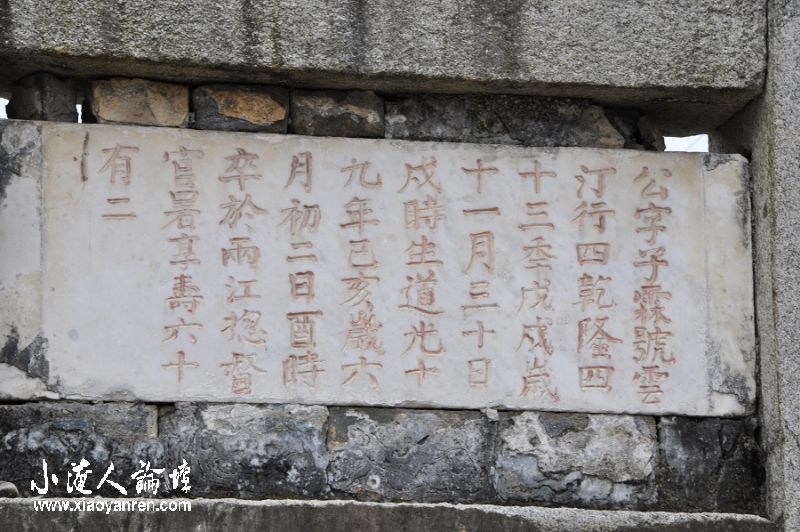 公字子霖號雲
汀行四乾隆四
十三年戊戌歲
十一月三十日
戌時生道光十
九年己亥歲六
月初二日酉時
卒於兩江揔督
官署享壽六十
有二
小淹人論壇
www.xiaoyanren.com